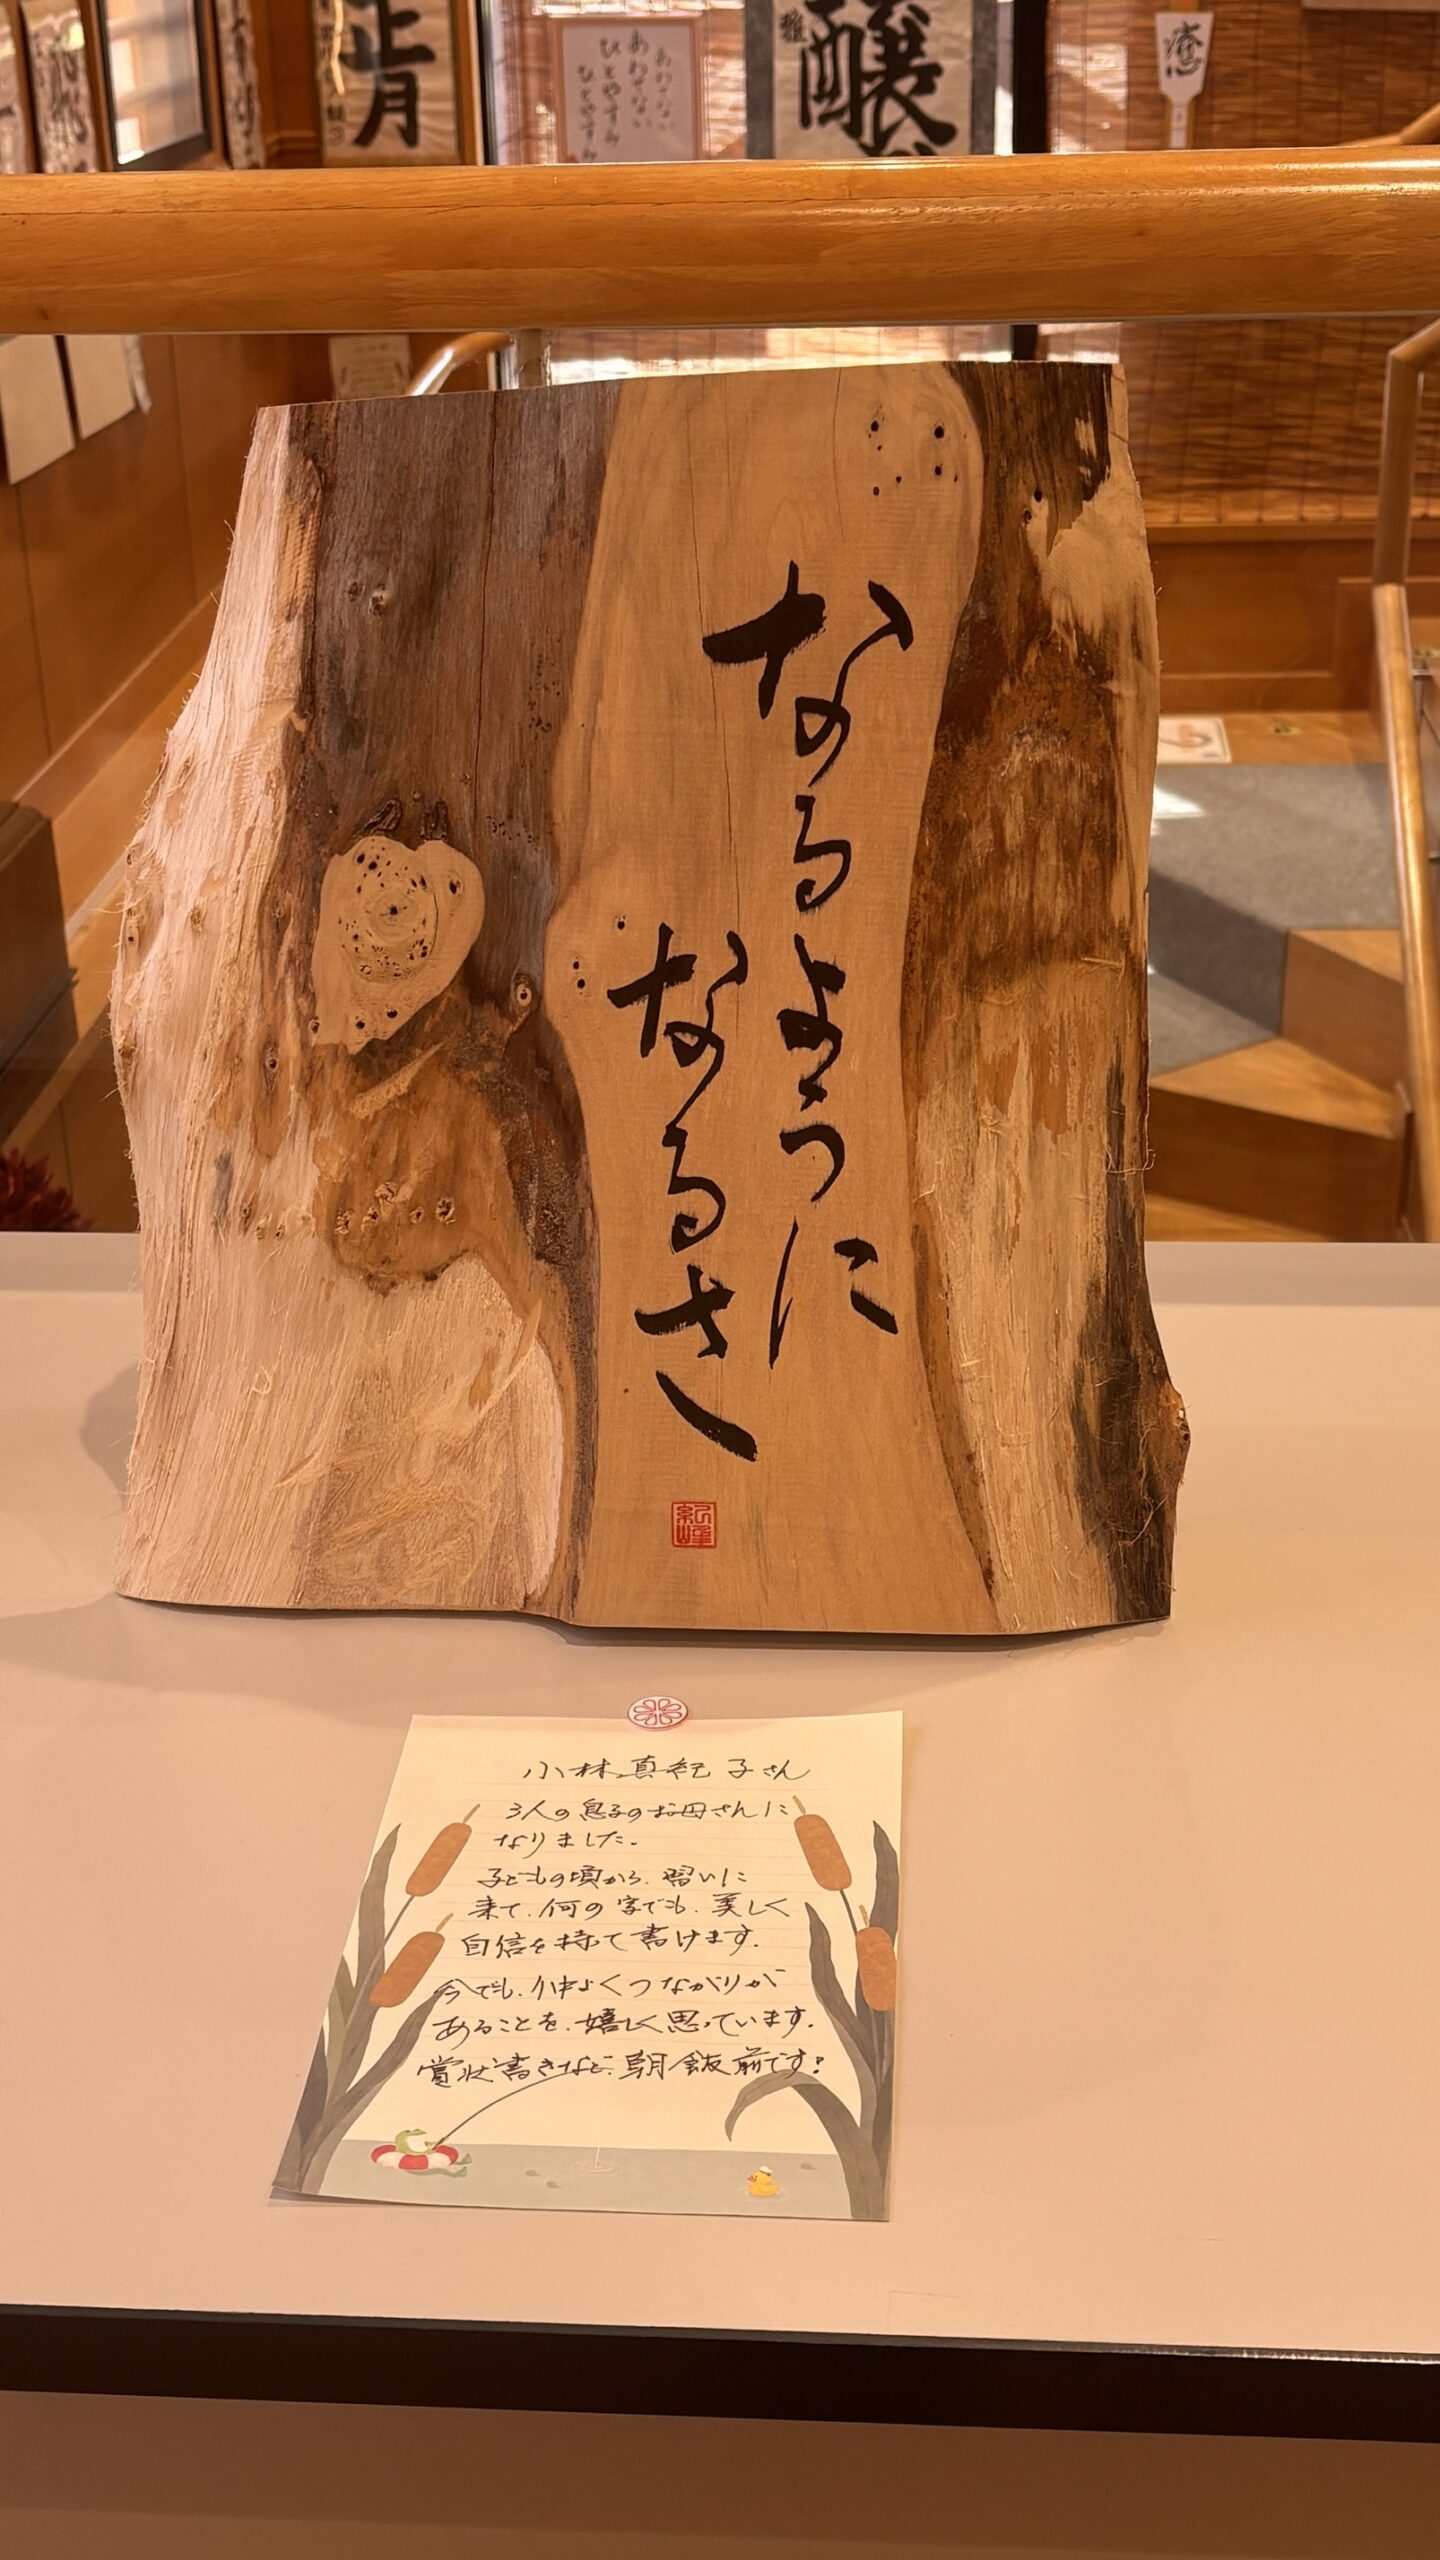 なるように
なるさ
紀峰
小林真紀子さん
3人の息子のお母さんに
なりました。
子どもの頃から、習いに
来て、何の字でも、美しく
自信を持って書けます。
今でも、仲よくつながりが
あることを、嬉しく思っています。
賞状書きなど、朝飯前です!
あわてない
あわてない
ひとやすみ
ひとやすみ
醸
雅
癒